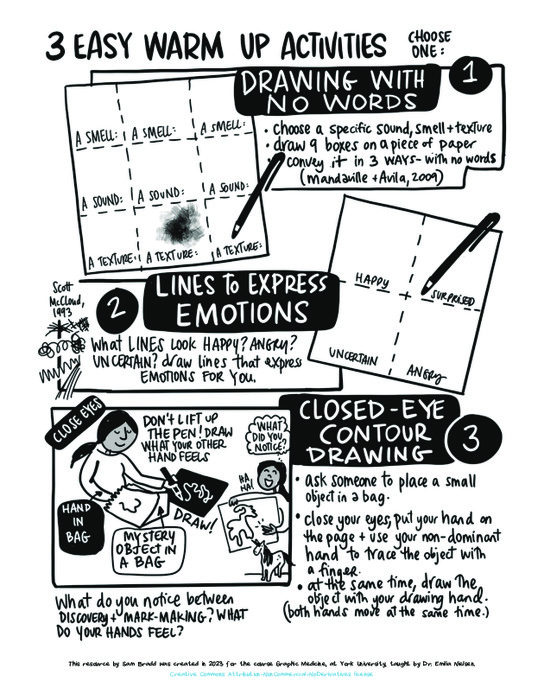 3 EASY WARM UP ACTIVITIES
CHOOSE
ONE:
1
DRAWING WITH
NO WORDS
• choose a specific sound, smell + texture
• draw 9 boxes on a piece of paper
convey it in 3 WAYS - with no words
(Mandaville + Avila, 2009)
A SMELL: A SMELL: A SMELL:
A SOUND: A SOUND: A SOUND:
A TEXTURE: A TEXTURE: A TEXTURE:
HAPPY
SURPRISED
UNCERTAIN
ANGRY
Scott
McCloud,
1993
2
LINES to EXPRESS
EMOTIONS
What LINES LOOK HAPPY? ANGRY?
UNCERTAIN? draw lines that express
EMOTIONS FOR YOU.
CLOSE EYES
DON'T LIFT UP
THE PEN! DRAW
WHAT YOUR OTHER
HAND FEELS
WHAT
DID YOU
NOTICE?
HA,
HA!
DRAW!
HAND
IN
BAG
MYSTERY
OBJECT IN
A BAG
CLOSED-EYE
CONTOUR
DRAWING
3
• ask someone to place a small
object in a bag.
• close your eyes, put your hand on
the page + use your non-dominant
hand to trace the object with
a finger.
• at the same time, draw the
object with your drawing hand.
(both hands move at the same time.)
What do you notice between
DISCOVERY + MARK-MAKING? WHAT
DO YOUR HANDS FEEL?
This resource by Sam Bradd was created in 2023 for the course Graphic Medicine, at York University, taught by Dr. Emilia Nielsen.
Creative Commons Attribution-NonCommercial-NoDerivatives license